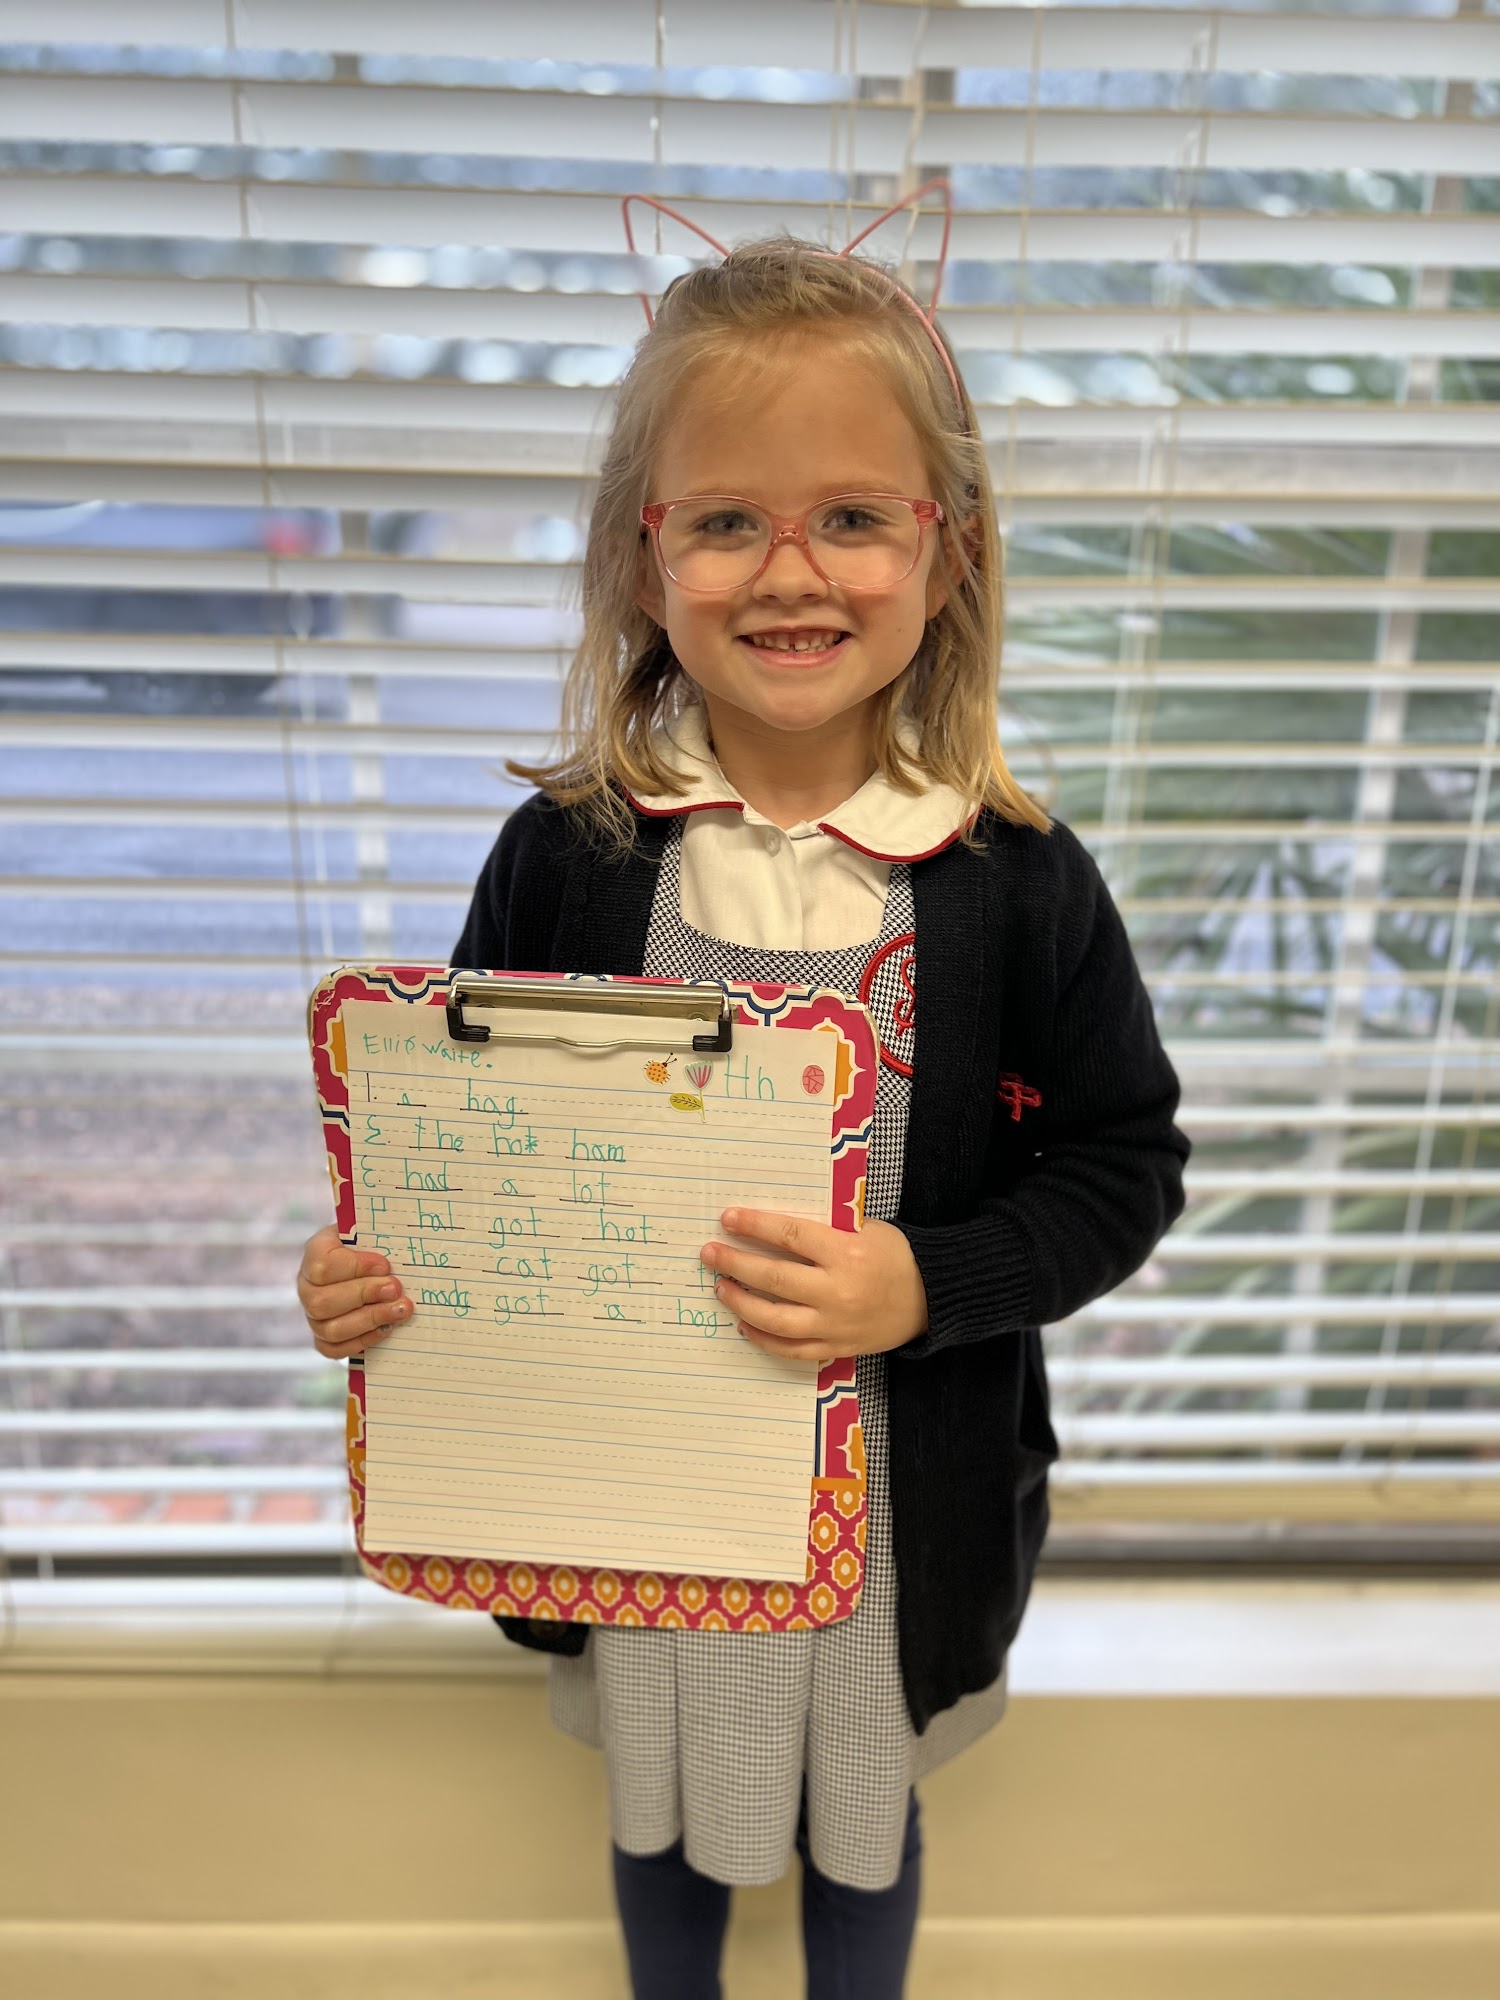 Ellie Waite.
Hh
1. a hag.
2. the hot ham
3. had a lot
4. hal got hot.
5. the cat got
madg got a hog